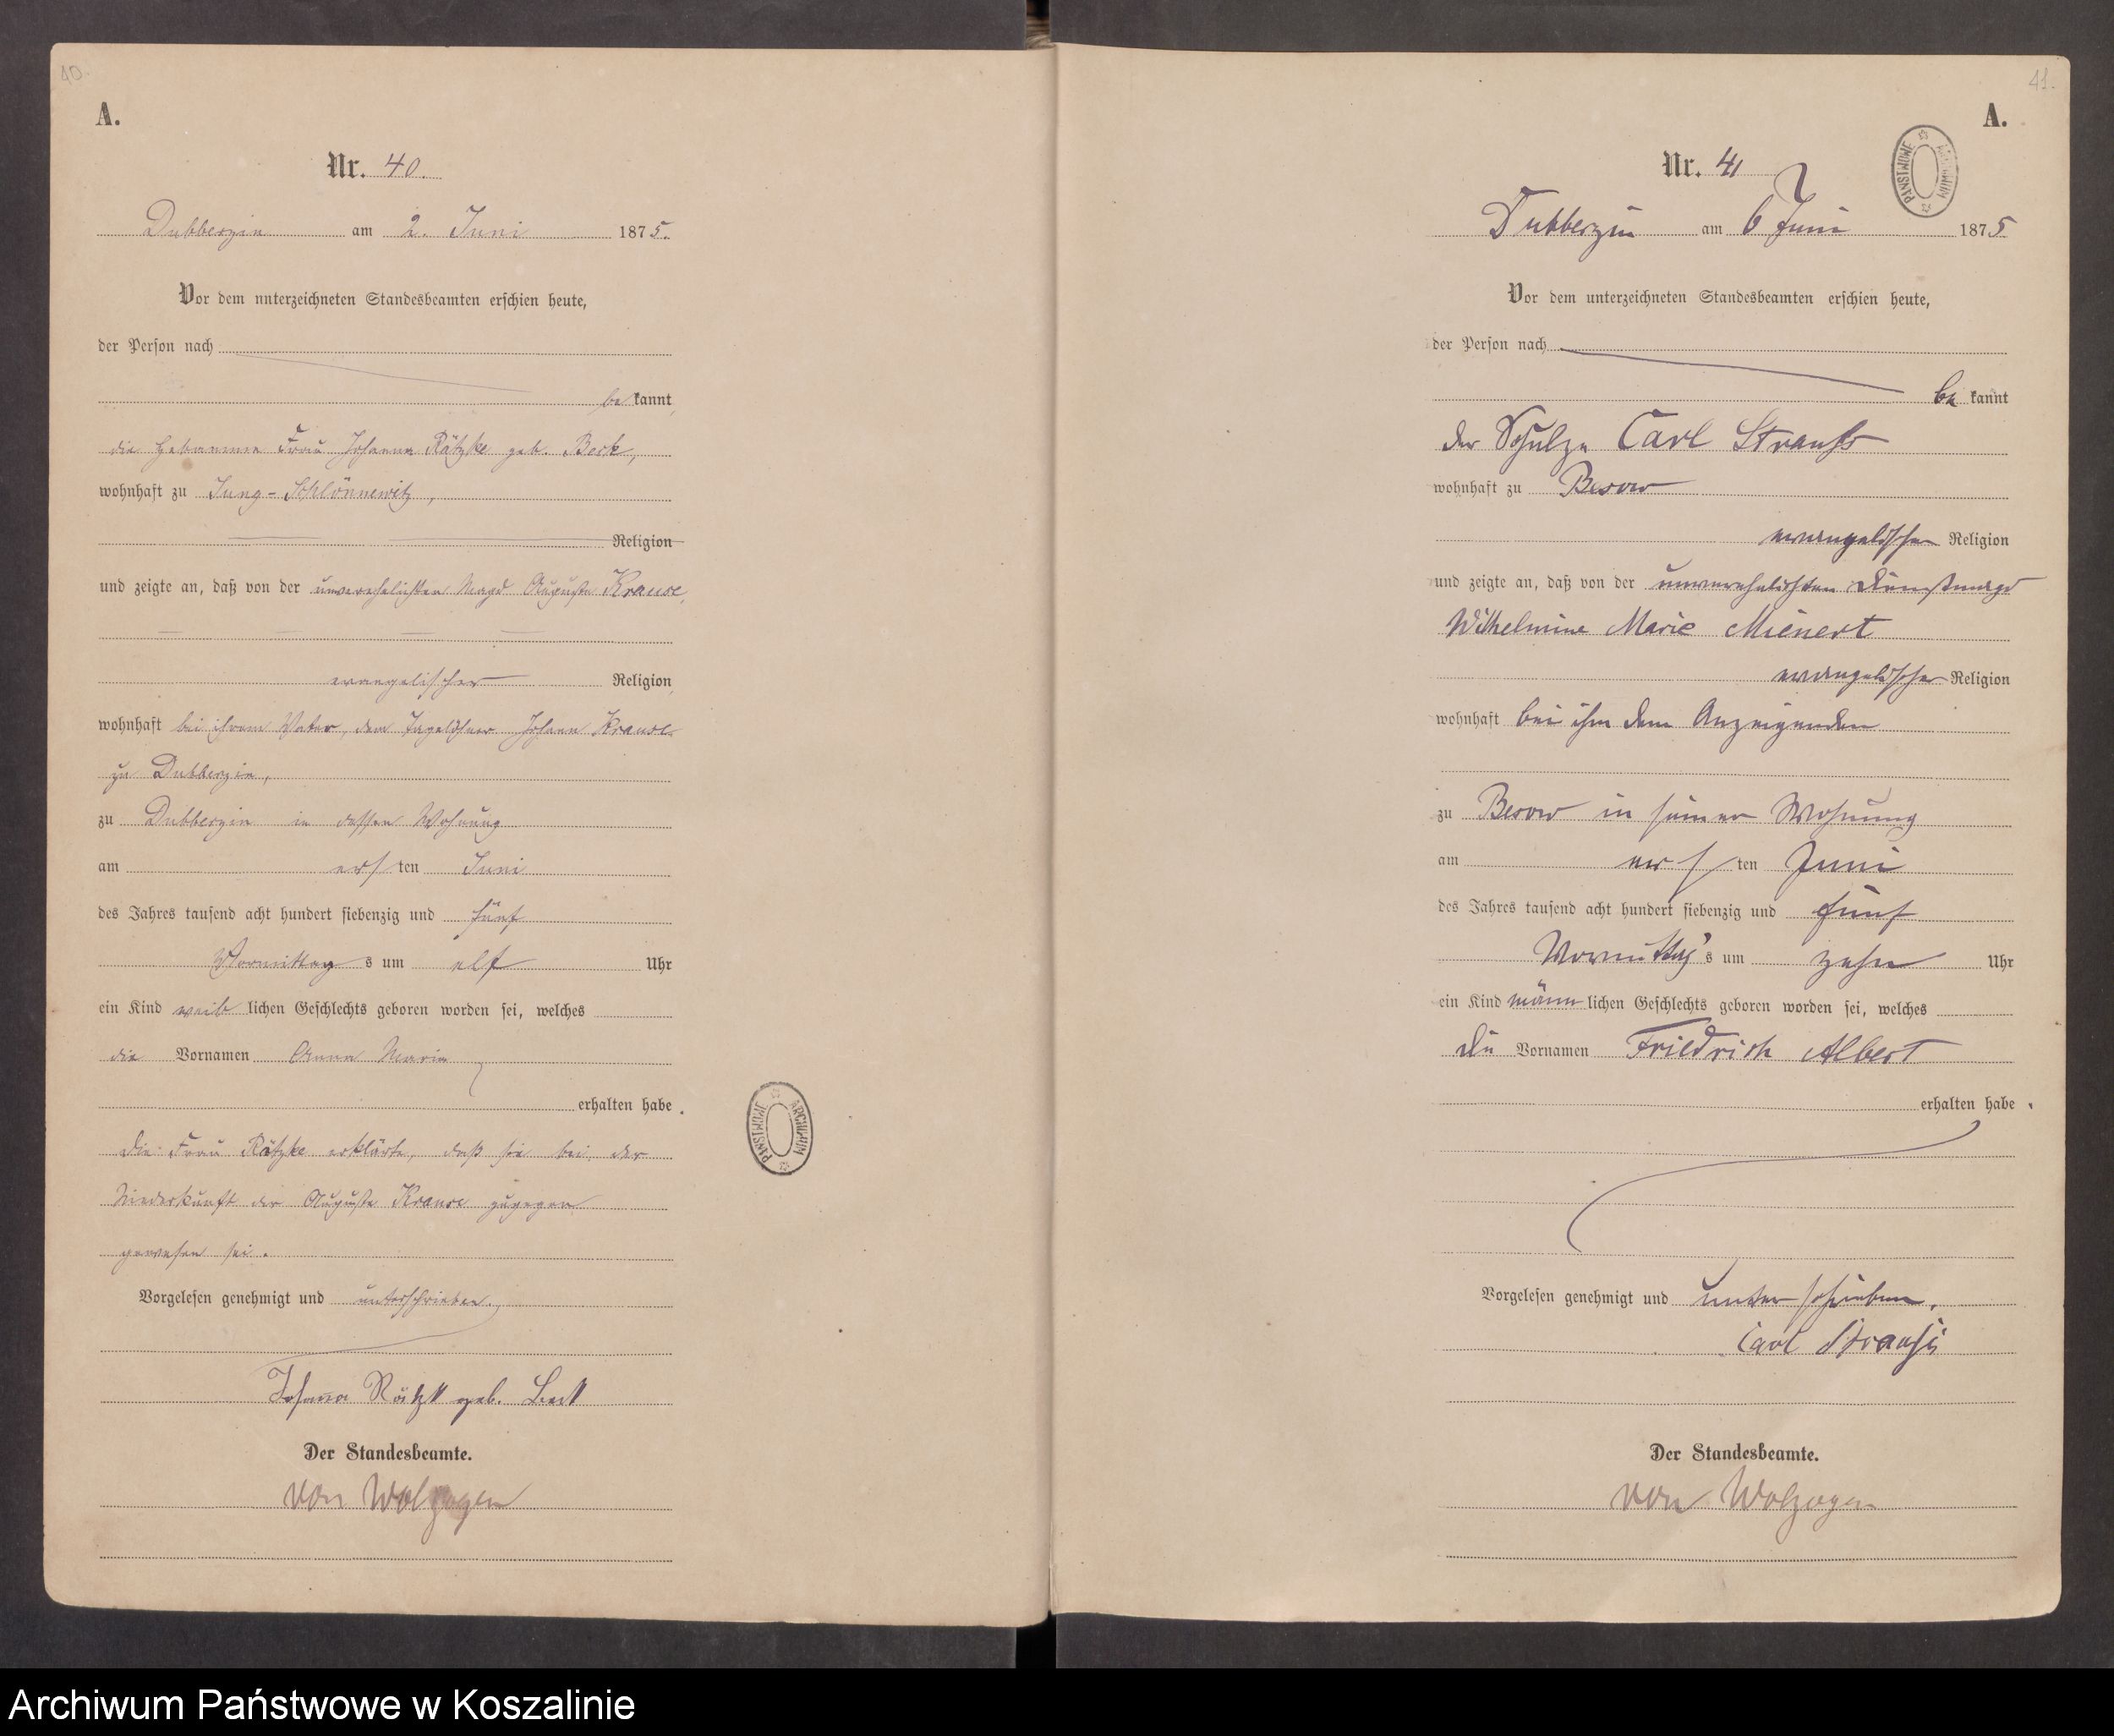 40.
A.
Nr. 40.
Dubberzin am 2. Juni 1875.
Vor dem unterzeichneten Standesbeamten erschien heute,
der Person nach
be kannt,
die Hebamme Frau Johanna Rätzke geb. Beck,
wohnhaft zu Jung-Schlönnewitz,
Religion
und zeigte an, daß von der unverehelichten Magd Auguste Krause,
evangelischer Religion,
wohnhaft bei ihrem Vater, dem Tagelöhner Johann Krause
zu Dubberzin,
zu Dubberzin in dessen Wohnung
am ers ten Juni
des Jahres tausend acht hundert siebenzig und fünf
Vormittag s um elf Uhr
ein Kind weib lichen Geschlechts geboren worden sei, welches
die Vornamen Anna Marie
erhalten habe.
Die Frau Rätzke erklärte, daß sie bei der
Niederkunft der Auguste Krause zugegen
gewesen sei.
Vorgelesen genehmigt und unterschrieben.
Johana Rätzk geb. Beck
Der Standesbeamte.
von Wolzogen
ARCHIWUM PAŃSTWOWE
41.
A.
Nr. 41
ARCHIWUM PAŃSTWOWE
Dubberzin am 6 Juni 1875
Vor dem unterzeichneten Standesbeamten erschien heute,
der Person nach
be kannt
der Schulze Carl Strauß
wohnhaft zu Besow
evangelischer Religion
und zeigte an, daß von der unverehelichten Dienstmagd
Wilhelmine Marie Mienert
evangelischer Religion
wohnhaft bei ihm dem Anzeigenden
zu Besow in seiner Wohnung
am ers ten Juni
des Jahres tausend acht hundert siebenzig und fünf
Vormittag's s um zehn Uhr
ein Kind männ lichen Geschlechts geboren worden sei, welches
die Vornamen Friedrich Albert
erhalten habe.
Vorgelesen genehmigt und unterschrieben.
Carl Strauß
Der Standesbeamte.
von Wolzogen
Archiwum Państwowe w Koszalinie